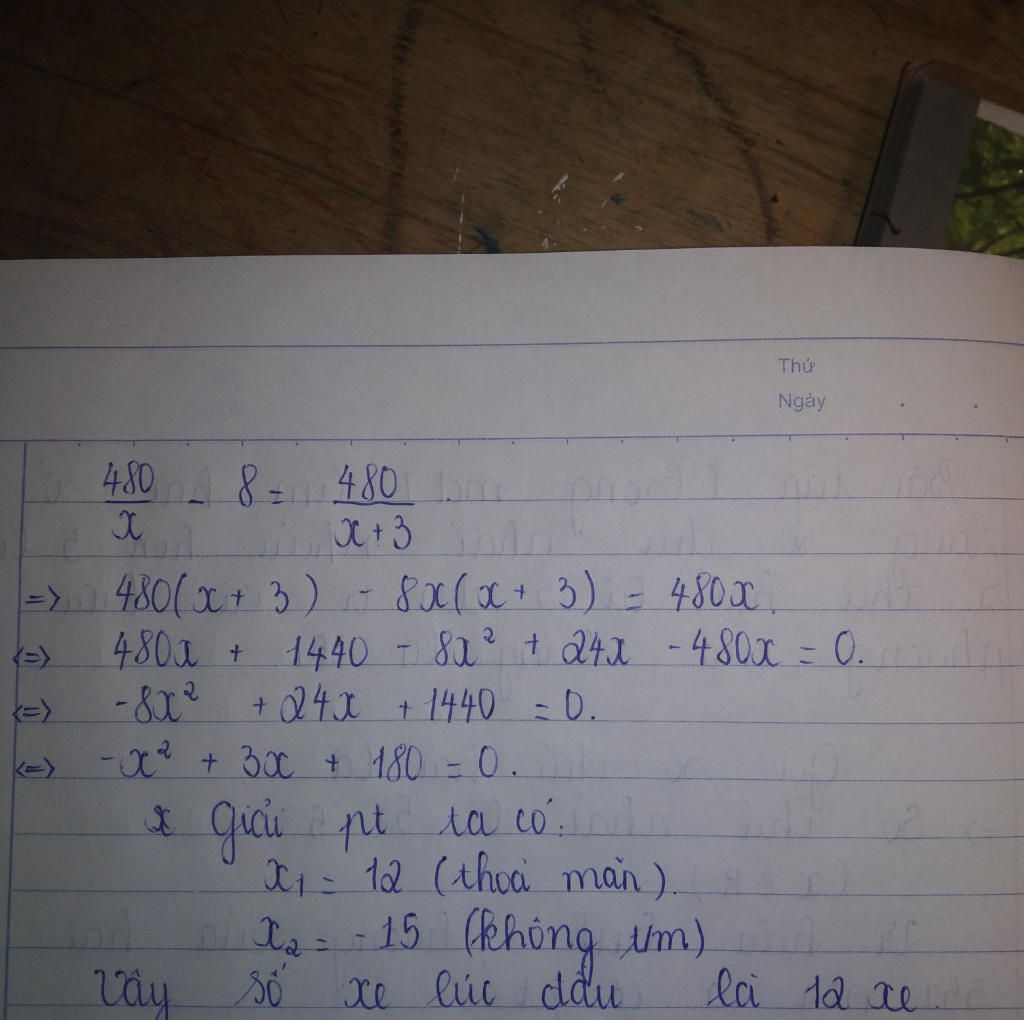 Thứ
Ngày
480/x - 8 = 480/(x+3)
=> 480(x + 3) - 8x(x + 3) = 480x.
<=> 480x + 1440 - 8x² + 24x - 480x = 0.
<=> -8x² + 24x + 1440 = 0.
<=> -x² + 3x + 180 = 0.
Giải pt ta có:
x₁ = 12 (thoả mãn).
x₂ = -15 (không t/m)
Vậy số xe lúc đầu là 12 xe.